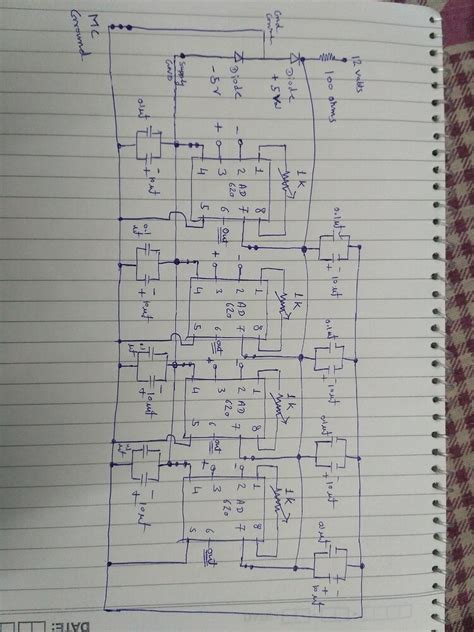 12 volts
100 ohms
Diode
+5V
Diode
-5V
Supply
GND
MC
Ground
1k
1 8
2 AD 7
3 620 6 out
4 5
-
+
0.1uf
- +
10uf
0.1uf
- +
10uf
1k
1 8
2 AD 7
3 620 6 out
4 5
-
+
0.1uf
- +
10uf
0.1uf
- +
10uf
1k
1 8
2 AD 7
3 620 6 out
4 5
-
+
0.1uf
- +
10uf
0.1uf
- +
10uf
1k
1 8
2 AD 7
3 620 6 out
4 5
-
+
0.1uf
- +
10uf
- +
10uf
DATE: